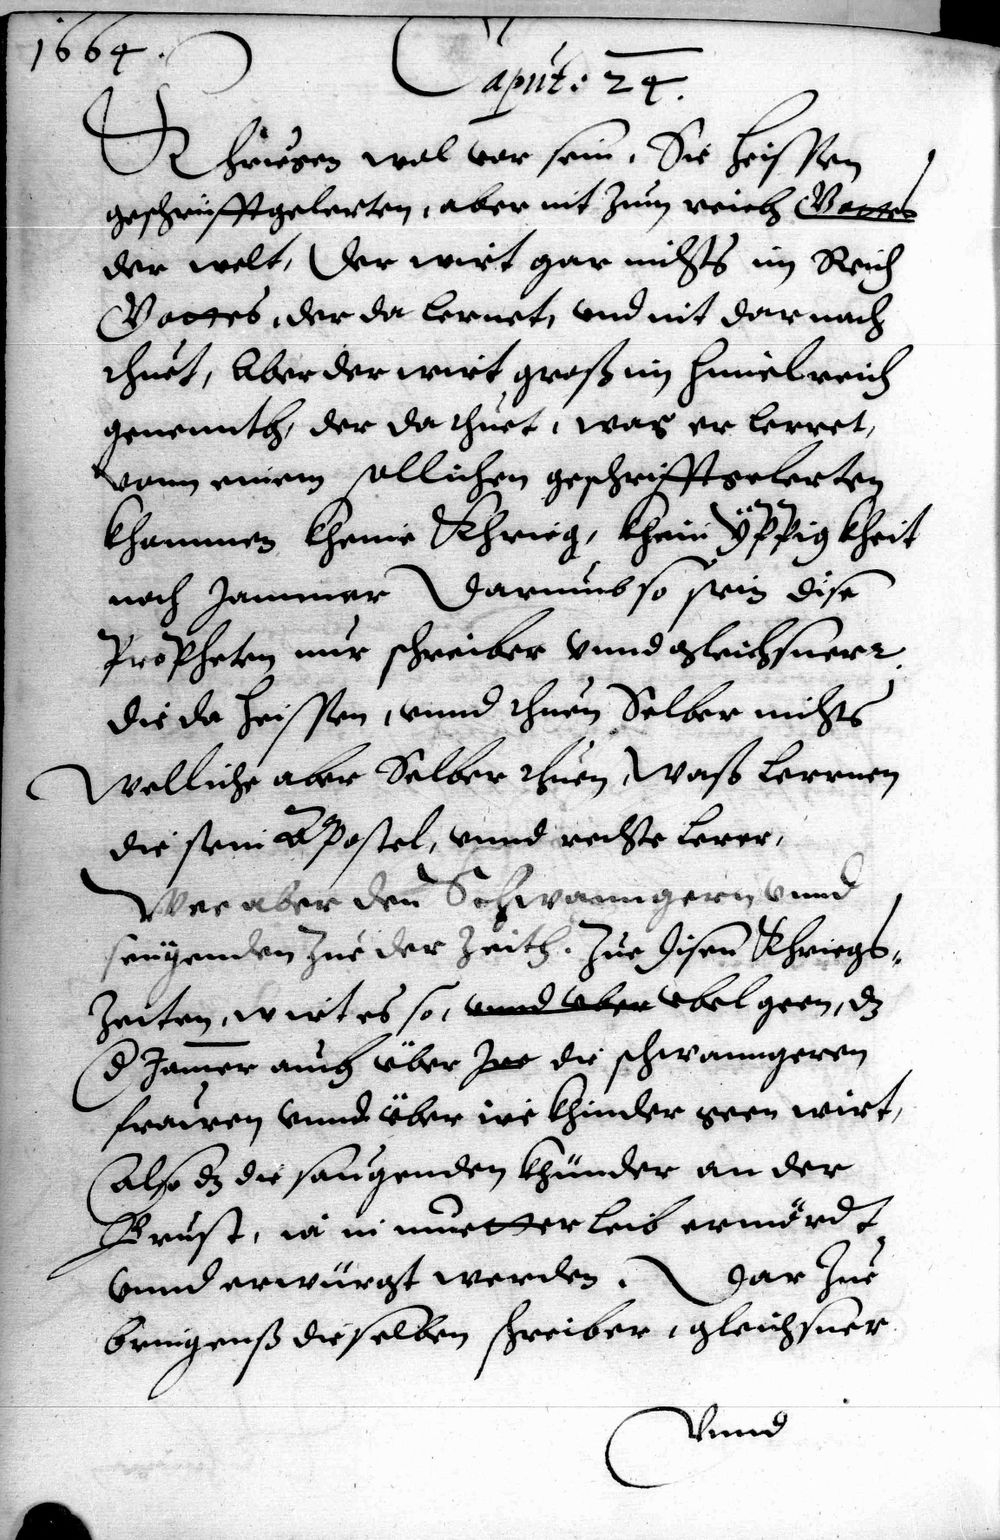 1664.
Caput: 24.
Khriegen wol vor sein, Sie heissen
geschrüfftgelerten, aber nit zum reich Gottes
der welt, Der wirt gar nichts im Reich
Gottes, der da lernet, vnd nit darnach
thuet, Aber der wirt groß im himelreich
genennth, der da thuet, was er lerret,
vonn einem sollichen geschrifftgelerten
khommen kheine Khrieg, khein Üppigkheit
noch Jammer Darumb so sein dise
Propheten nur schreiber vnnd gleichsnerr
die da heissen, vnnd thuen Selber nichts
Welliche aber Selber thuen, Waß lernen
die sein Apostel, vnnd rechte lerer,
Wee aber den Schwanngern vnnd
seugenden Zue der Zeith. Zue disen Khriegs-
Zeiten, wirt es so, vnnd vber vbel geen, dz
d Jamer auch über Jre die schwanngeren
frawen vnnd über ire khinder geen wirt,
Also dz die saugenden khünder an der
Brust, ia in muetter leib ermördt
vnnd erwürgt werden. Dar Zue
bringenß dieselben schreiber, gleichsner
Vnnd